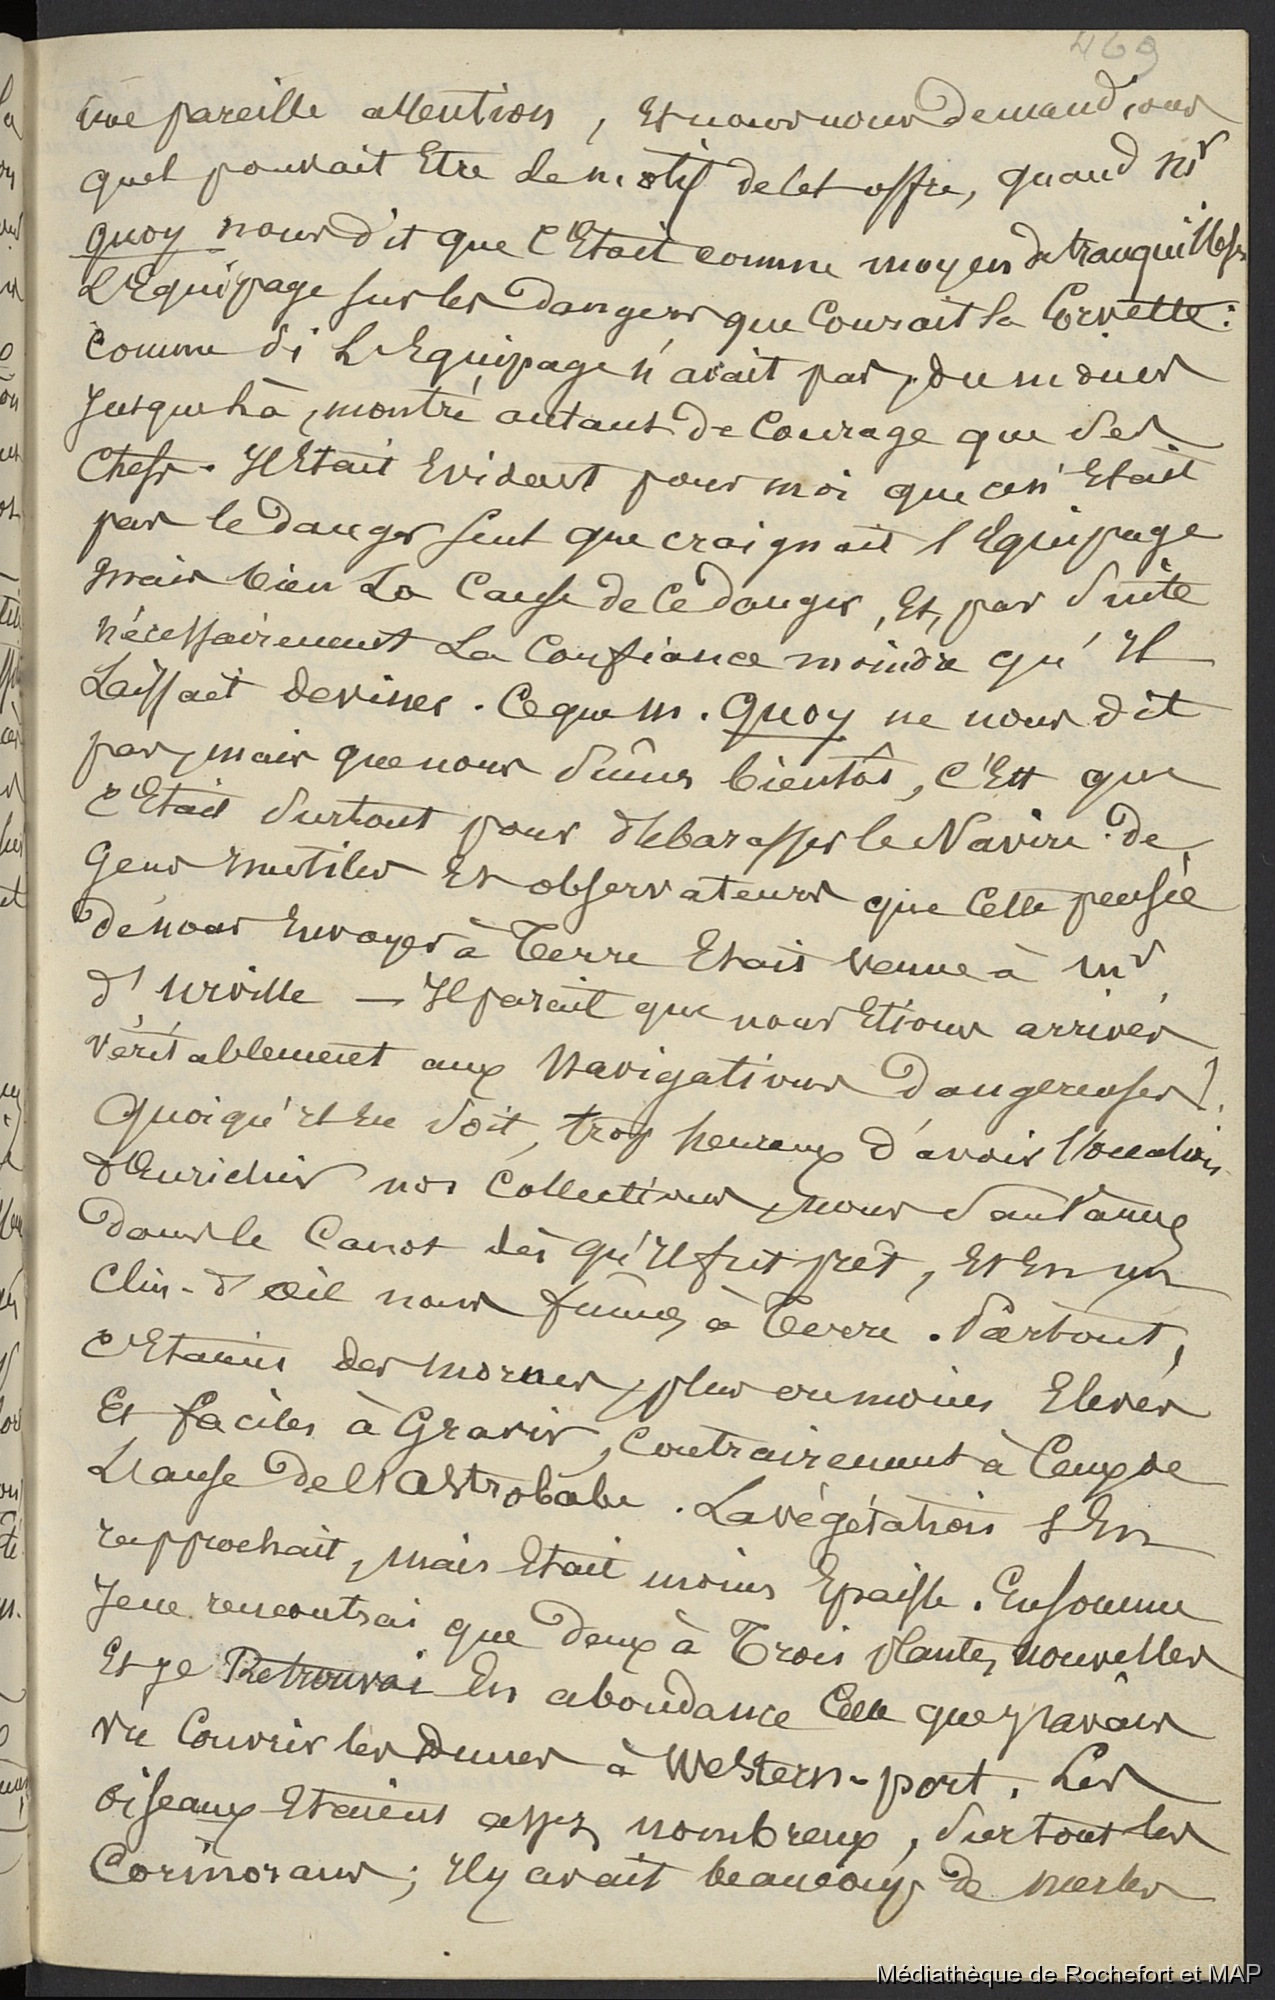 469
une pareille attention, Et nous nous demandions
quel pouvait Etre le motif de cet offre, quand Mr
Quoy nous dit que C'Etait comme moyen de tranquilliser
L'Equipage sur les Dangers que Courait la Corvette:
Comme Si L'Equipage n'avait pas, du moins
Jusque là, montré autant de Courage que Ses
Chefs. Il Etait Evident pour moi que ce n'Etait
pas le Danger Seul que craignait l'Equipage
mais bien La Cause de Ce danger, Et, par Suite
nécessairement La Confiance moindre qu'Il
Laissait deviner. Ce que M. Quoy ne nous dit
pas, mais que nous Sûmes bientôt, C'Est que
C'Etait Surtout pour débarasser le Navire de
Gens Inutiles Et observateurs que Cette pensée
de nous Envoyer à Terre Etait venue à Mr
d'Urville — Il parait que nous Etions arrivés
véritablement aux Navigations Dangereuses!
Quoiqu'Il En Soit, trop heureux d'avoir l'occasion
d'Enrichir nos Collections, nous Sautâmes
Dans le Canot dès qu'Il fut prêt, Et En un
Clin-d'œil nous fûmes à Terre. Partout,
C'Etaient des mornes, plus ou moins Elevés
Et faciles à Gravir, Contrairement à Ceux de
L'anse De l'Astrolabe. La végétation S'En
rapprochait, mais Etait moins Epaisse. En Somme
Je ne rencontrai que Deux à Trois plantes nouvelles
Et Je Retrouvai En abondance Celle que J'avais
vu Couvrir les Dunes à Western-port. Les
oiseaux Etaient assez nombreux, Surtout les
Cormorans; Il y avait beaucoup de merles
Médiathèque de Rochefort et MAP